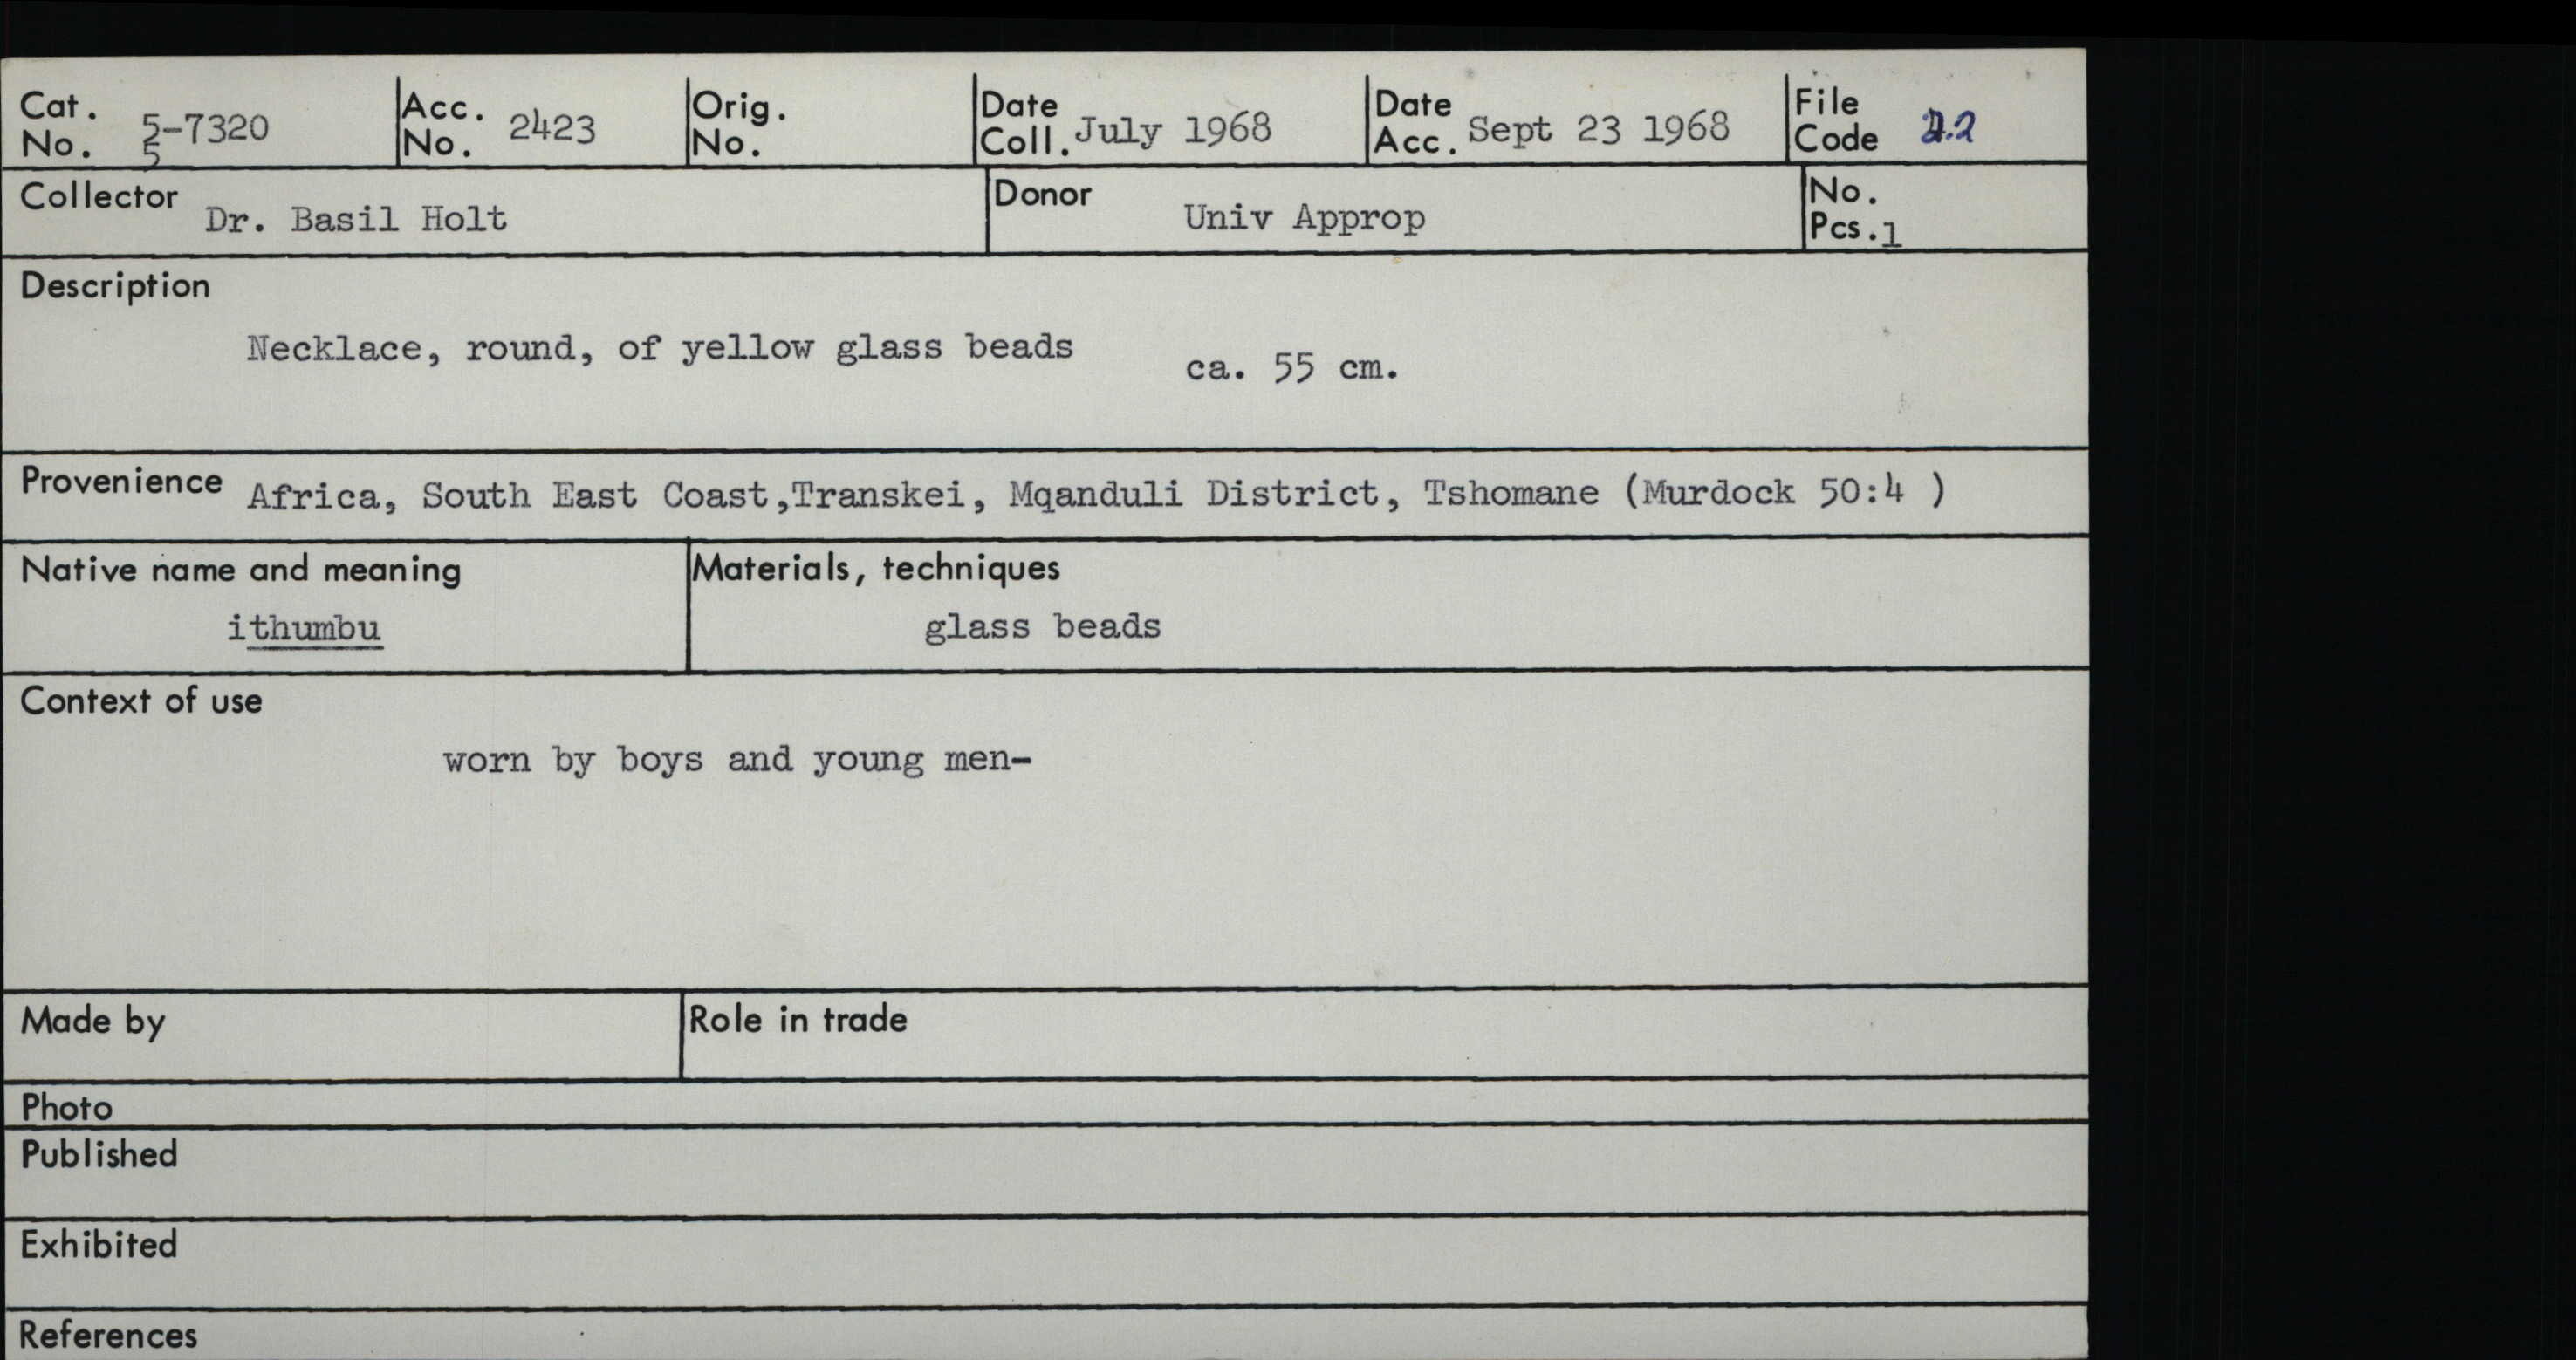 Cat. No. 5-7320
5
Acc. No. 2423
Orig. No.
Date Coll. July 1968
Date Acc. Sept 23 1968
File Code 2.2
Collector Dr. Basil Holt
Donor Univ Approp
No. Pcs. 1
Description
Necklace, round, of yellow glass beads ca. 55 cm.
Provenience Africa, South East Coast,Transkei, Mqanduli District, Tshomane (Murdock 50:4 )
Native name and meaning
ithumbu
Materials, techniques
glass beads
Context of use
worn by boys and young men-
Made by
Role in trade
Photo
Published
Exhibited
References